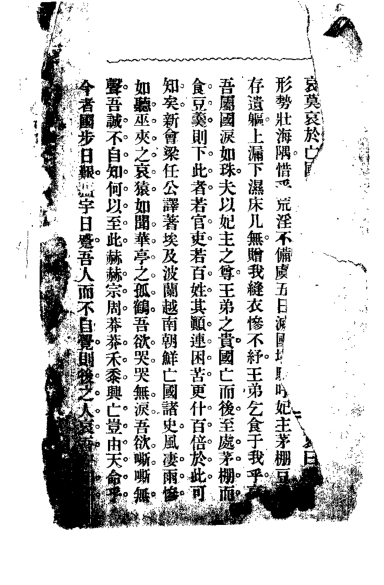 哀莫哀於亡國
形勢壯海隅惜乎荒淫不備虞五日滅國 妃主茅棚豆
存遺軀上漏下濕床几無贈我縫衣慘不紓王弟乞食于我乎
吾屬國淚如珠夫以妃主之尊王弟之貴國亡而後至處茅棚而
食豆羹則下此者若官吏若百姓其顚連困苦更什百倍於此可
知矣新會梁任公譯著埃及波蘭越南朝鮮亡國諸史風凄雨慘
如聽巫夾之哀猿如聞華亭之孤鶴吾欲哭哭無淚吾欲嘶嘶無
聲吾誠不自知何以至此赫赫宗周莽莽禾黍興亡豈由天命乎
今者國步日艱 宇日蹙吾人而不自覺則後之人哀吾